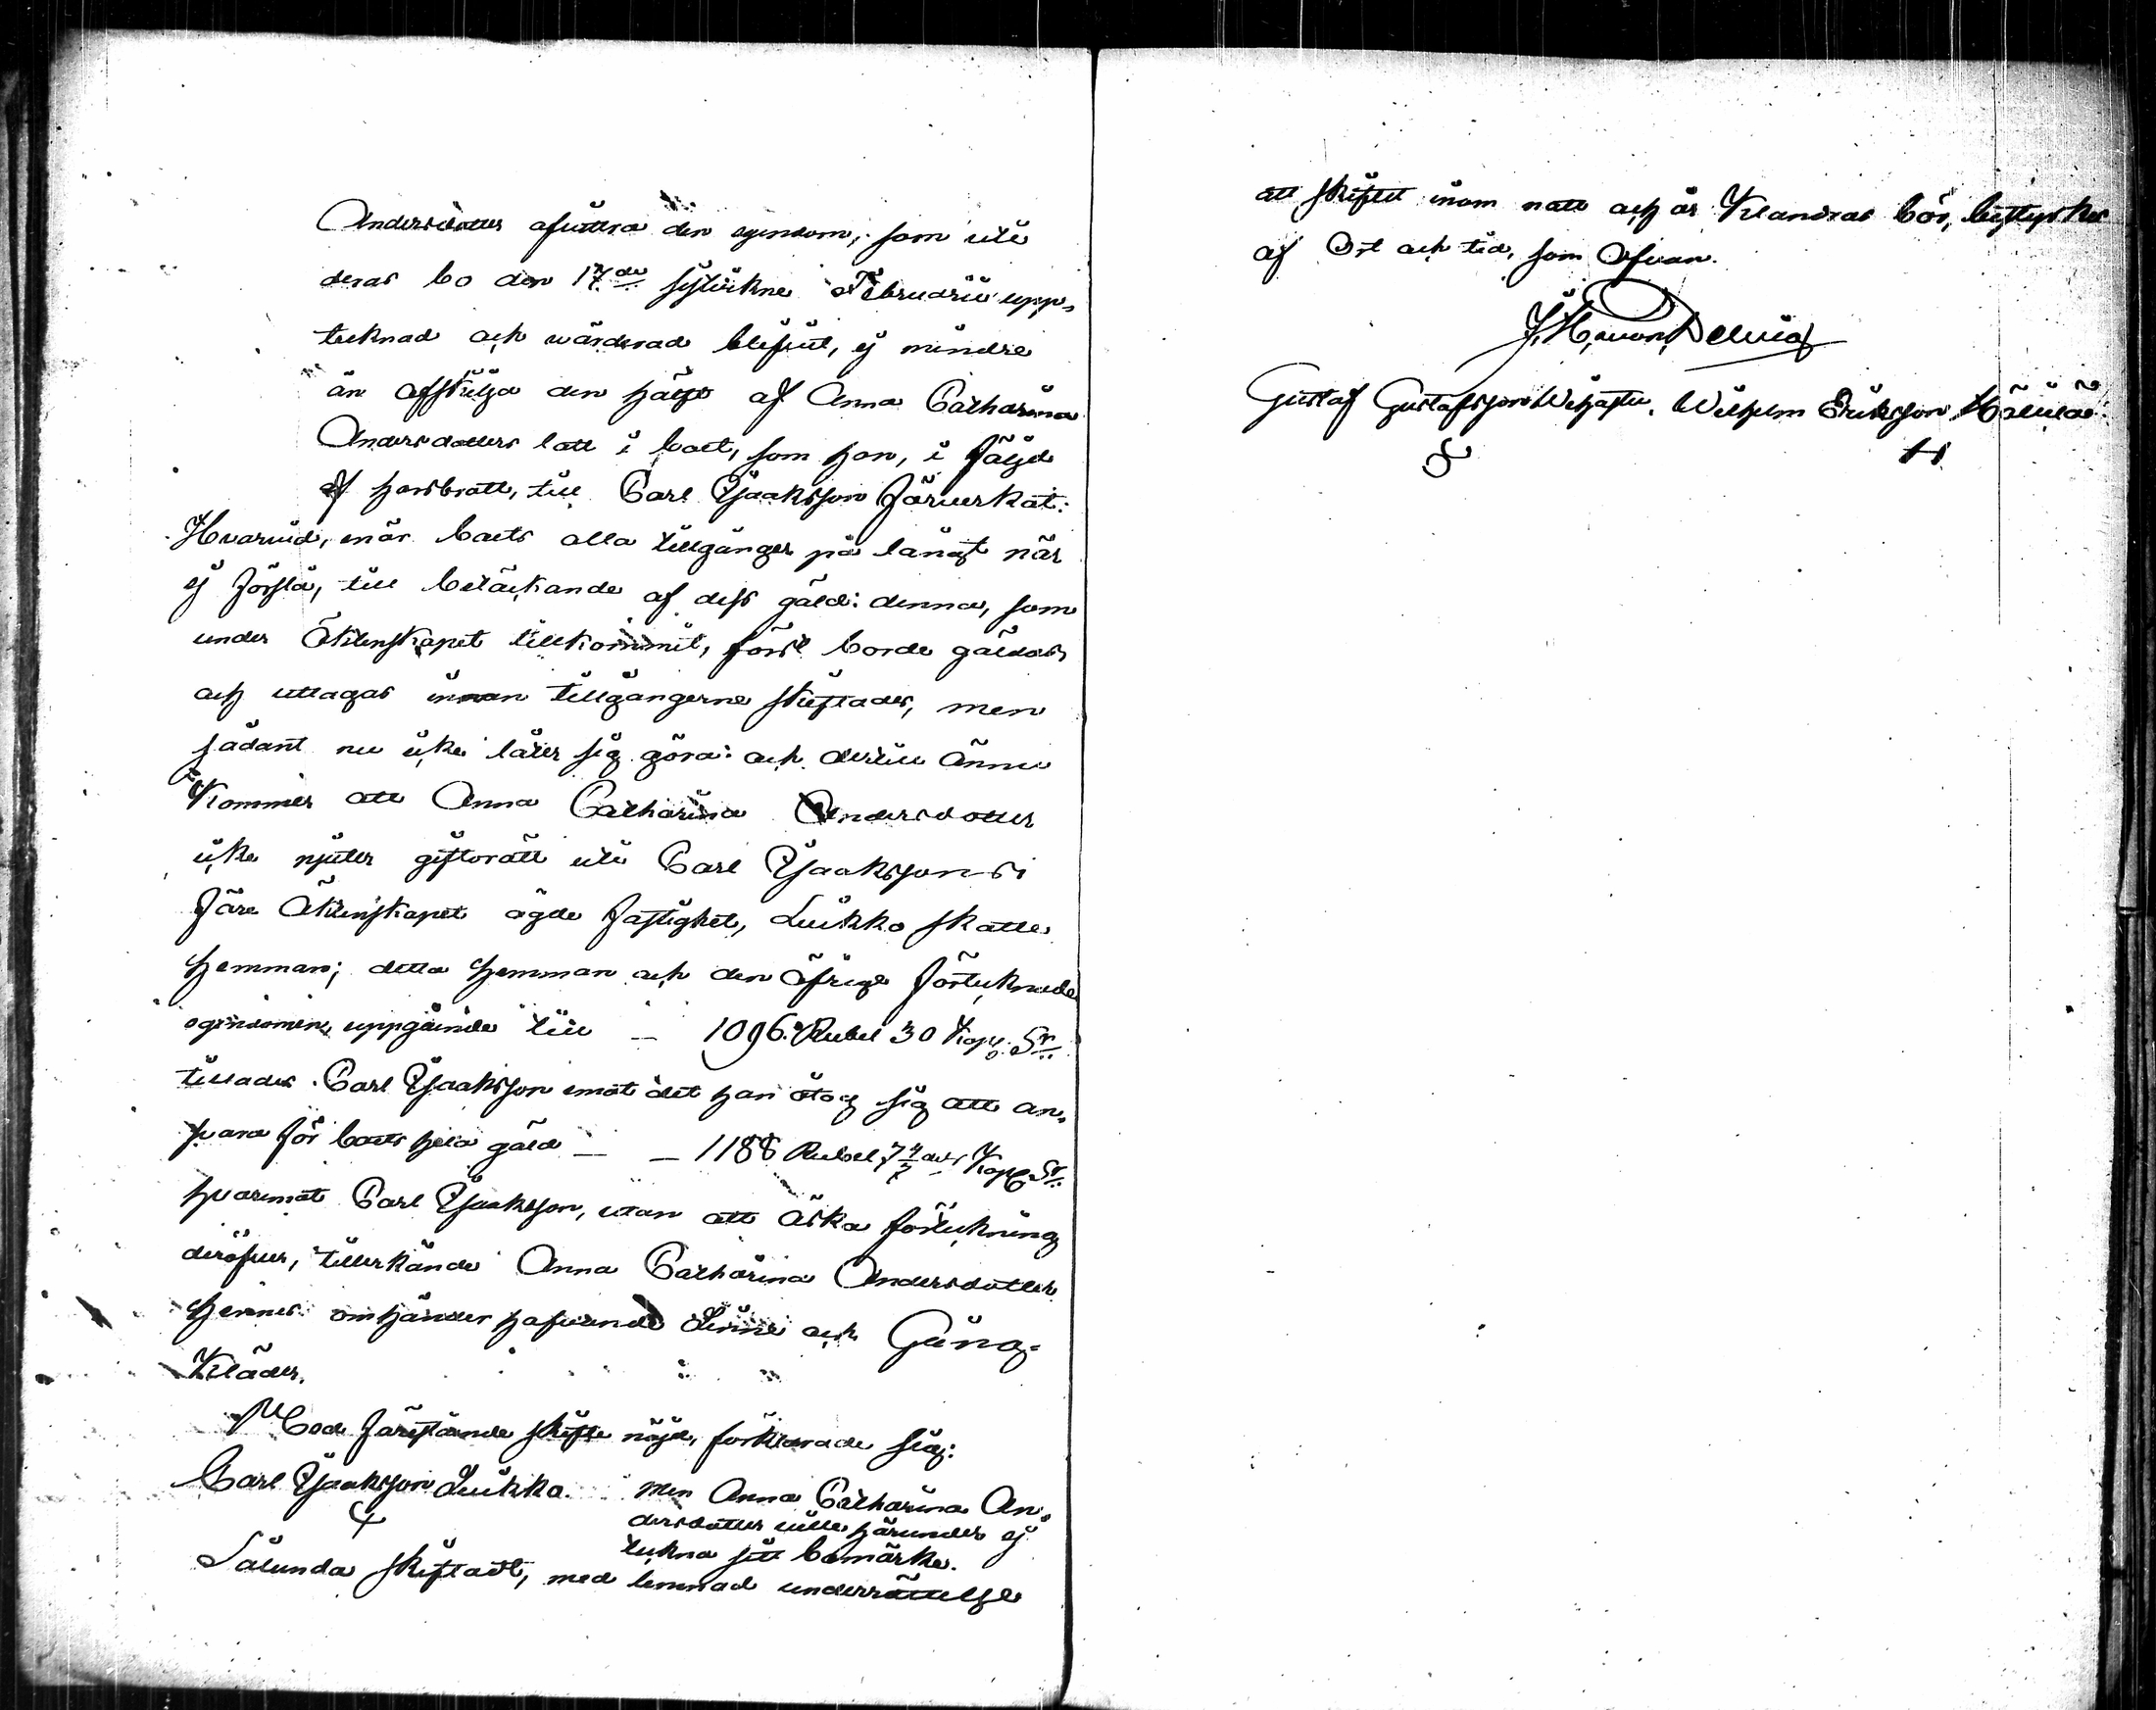 Andersdotter afvittra den egendom, som uti
deras bo den 17de sistvikne Februarii upp-
tecknad och wärderad blifvit, ej mindre
än afskilja den hälft af Anna Catharina
Andersdotters lott i boet, som hon, i följd
af horsbrott, till Carl Isaaksson förverkat:
Hvarvid, enär boets alla tillgångar på långt när
ej förslå, till betäckande af dess gäld: denna, som
under Äktenskapet tillkommit, först borde gäldas
och uttagas innan tillgångerne skiftades, men
sådant nu icke låter sig göra: och dertill ännu
kommer att Anna Catharina Andersdotter
icke njuter giftorätt uti Carl Isaakssons i
före Äktenskapet ägde fastighet, Luikko skatte
hemman; detta hemman och den öfriga förtecknade
egendomen, uppgående till — 1096. Rubel 30 Kop. Sr
tillades Carl Isaaksson emot det han åtog sig att an-
svara för boets hela gäld — — 1188 Rubel 7 4/7 dels Kop Sr
hvaremot Carl Isaaksson, utan att äska förteckning
deröfver, tillerkände Anna Catharina Andersdotter
hennes omhänder hafvande Linne och Gång-
Kläder.
Med förestående skifte nöjd, förklarade sig:
Carl Isaaksson Luikko. men Anna Catharina An-
dersdotter ville härunder ej
teckna sitt bomärke.
Sålunda skiftadt, med lemnad underrättelse
att skiftet inom natt och år Klandras bör, betygas
af Ort och tid, som Ofvan.
Gustaf Gustafsson Wilhelm Eriksson